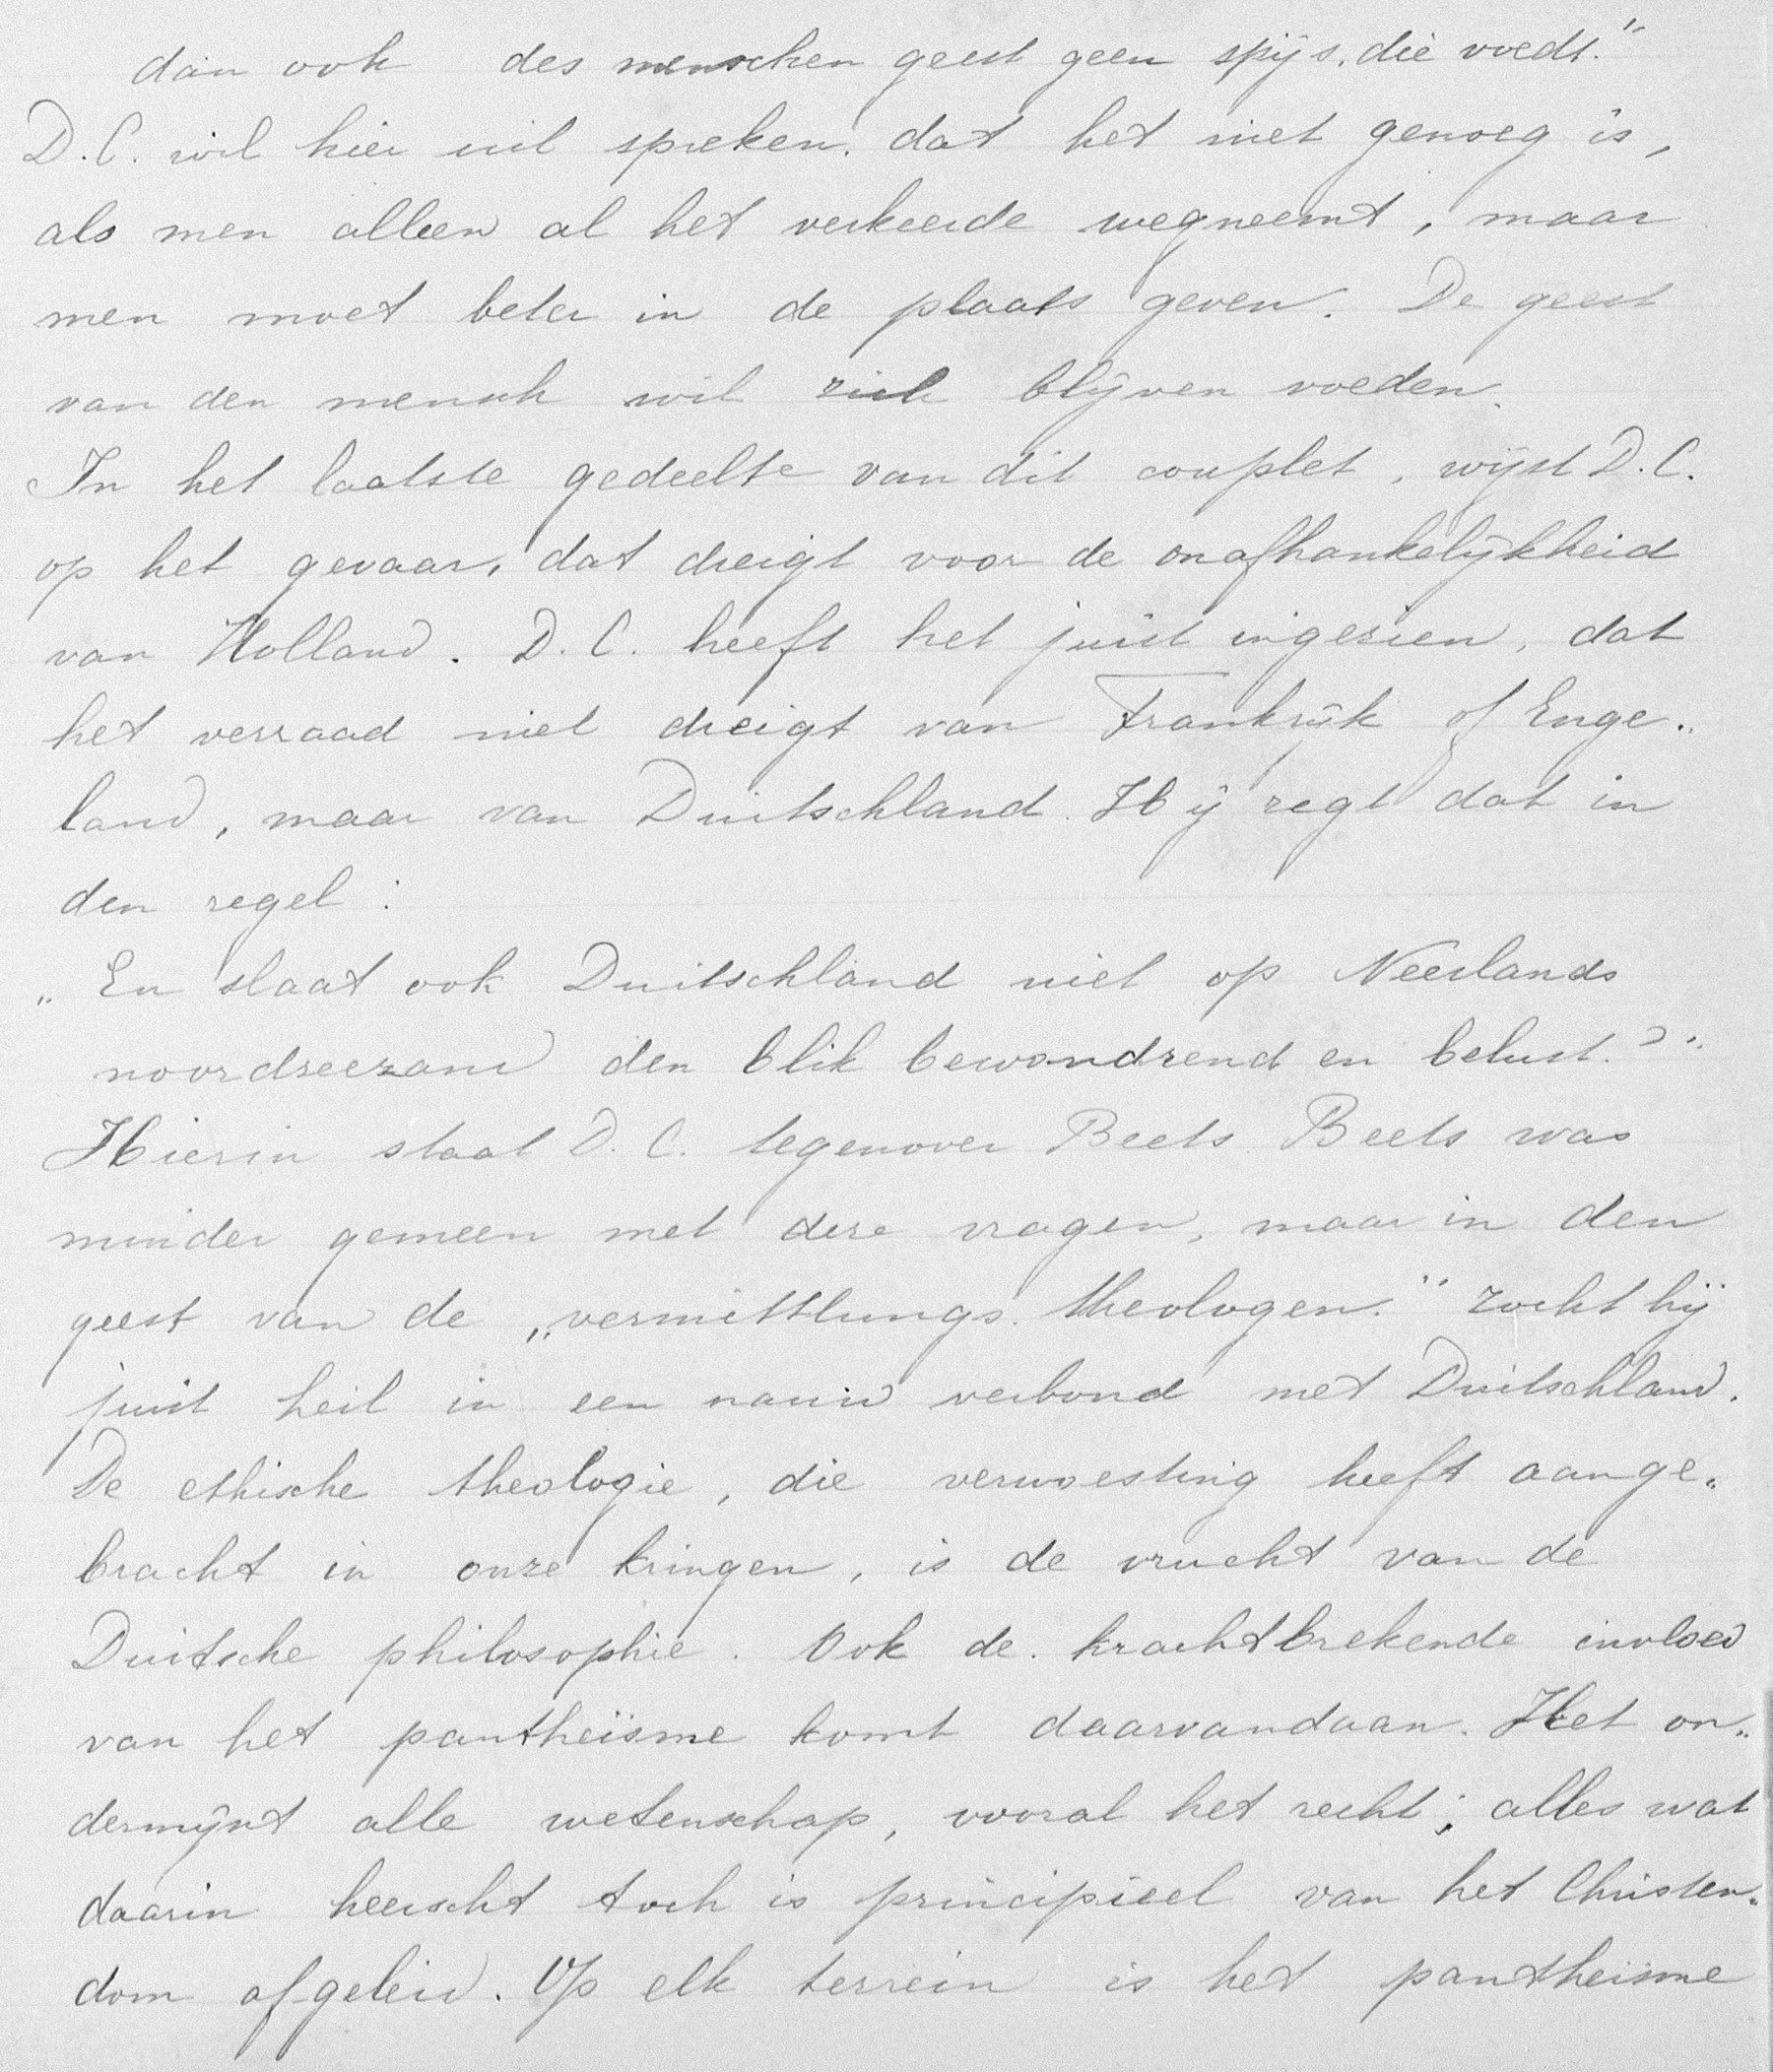 dan ook des menschen geest geen spijs, die voedt."
D.C. wil hier uit spreken, dat het niet genoeg is,
als men alleen al het verkeerde wegneemt, maar
men moet beter in de plaats geven. De geest
van den mensch wil zich blijven voeden.
In het laatste gedeelte van dit couplet, wijst D.C.
op het gevaar, dat dreigt voor de onafhankelijkheid
van Holland. D.C. heeft het juist ingezien, dat
het verraad niet dreigt van Frankrijk of Enge„
land, maar van Duitschland. Hij zegt dat in
den regel:
„En slaat ook Duitschland niet op Neerlands
noordzeezand den blik bewondrend en belust?"
Hierin staat D.C. tegenover Beets. Beets was
minder gemeen met deze vragen, maar in den
geest van de „vermittlungs. theologen." zocht hij
juist heil in een nauw verbond met Duitschland.
De ethische theologie, die verwoesting heeft aange„
bracht in onze kringen, is de vrucht van de
Duitsche philosophie. Ook de krachtbrekende invloed
van het pantheïsme komt daarvandaan. Het on„
dermijnt alle wetenschap, vooral het recht; alles wat
daarin heerscht toch is principieel van het Christen„
dom afgeleid. Op elk terrein is het pantheisme